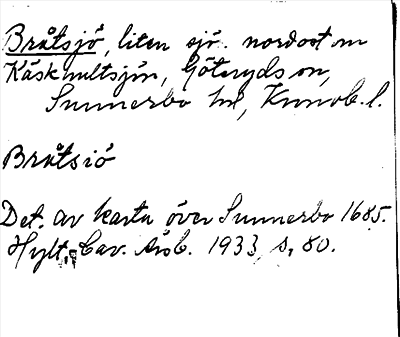 Bråtsjö, liten sjö. nordost om
Käskhultsjön, Göteryds sn,
Sunnerbo hd, Kronob. l.
Bråtsiö
Det. av karta över Sunnerbo 1685.
Hylt.-Cav. Årsb. 1933, s. 80.